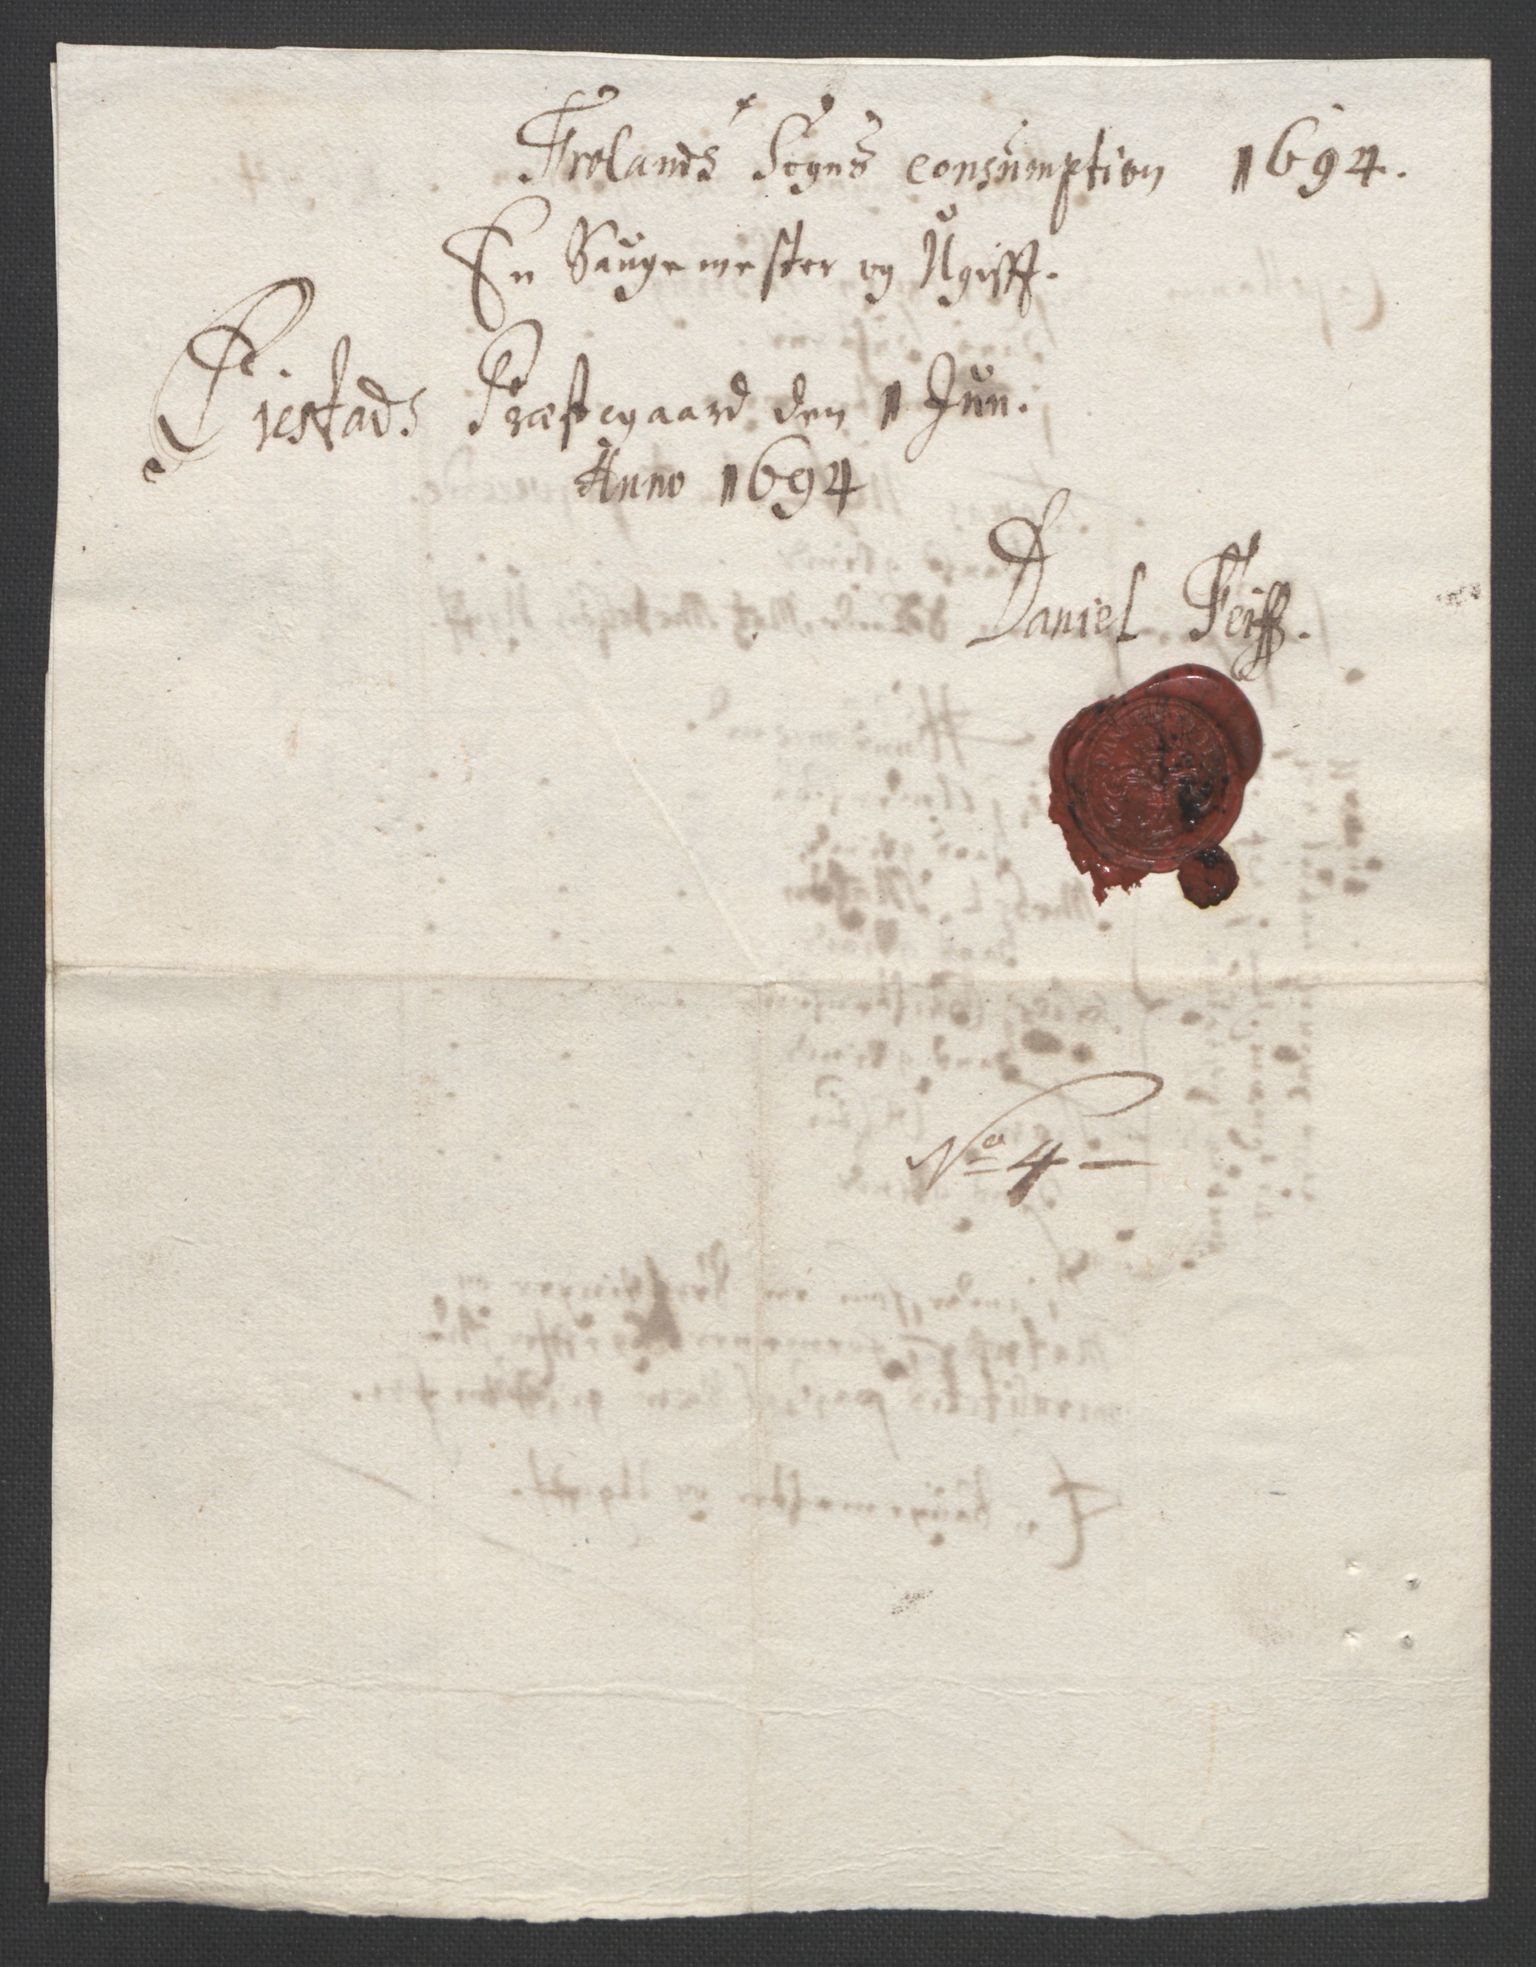 Frolands Sogns consumption 1694.
En Saugemester og Ugifft.
Øiestads Præstegaard den 1 Jun.
Anno 1694
Daniel Feiff.
No 4 —